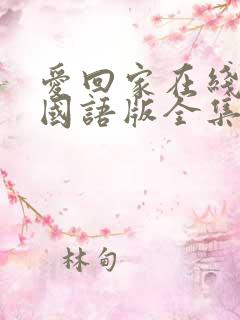 愛回家在綫
國語版全集
林甸